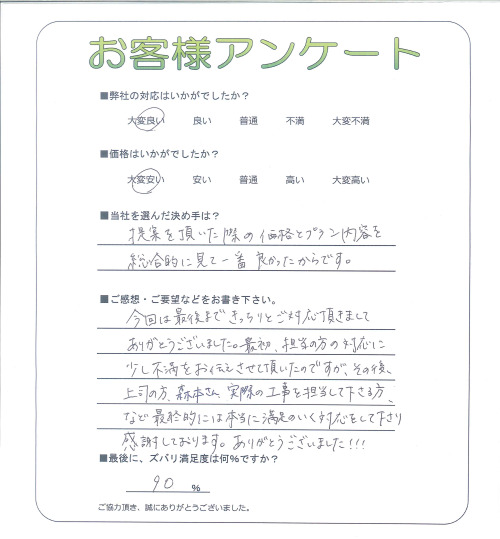 お客様アンケート
■弊社の対応はいかがでしたか？
大変良い 良い 普通 不満 大変不満
■価格はいかがでしたか？
大変安い 安い 普通 高い 大変高い
■当社を選んだ決め手は？
提案を頂いた際の価格とプラン内容を
総合的に見て一番良かったからです。
■ご感想・ご要望などをお書き下さい。
今回は最後まできっちりとご対応頂きまして
ありがとうございました。最初、担当の方の対応に
少し不満をお伝えさせて頂いたのですが、その後、
上司の方、森本さん、実際の工事を担当して下さる方、
など最終的には本当に満足のいく対応をして下さり
感謝しております。ありがとうございました!!!
■最後に、ズバリ満足度は何%ですか？
90 %
ご協力頂き、誠にありがとうございました。